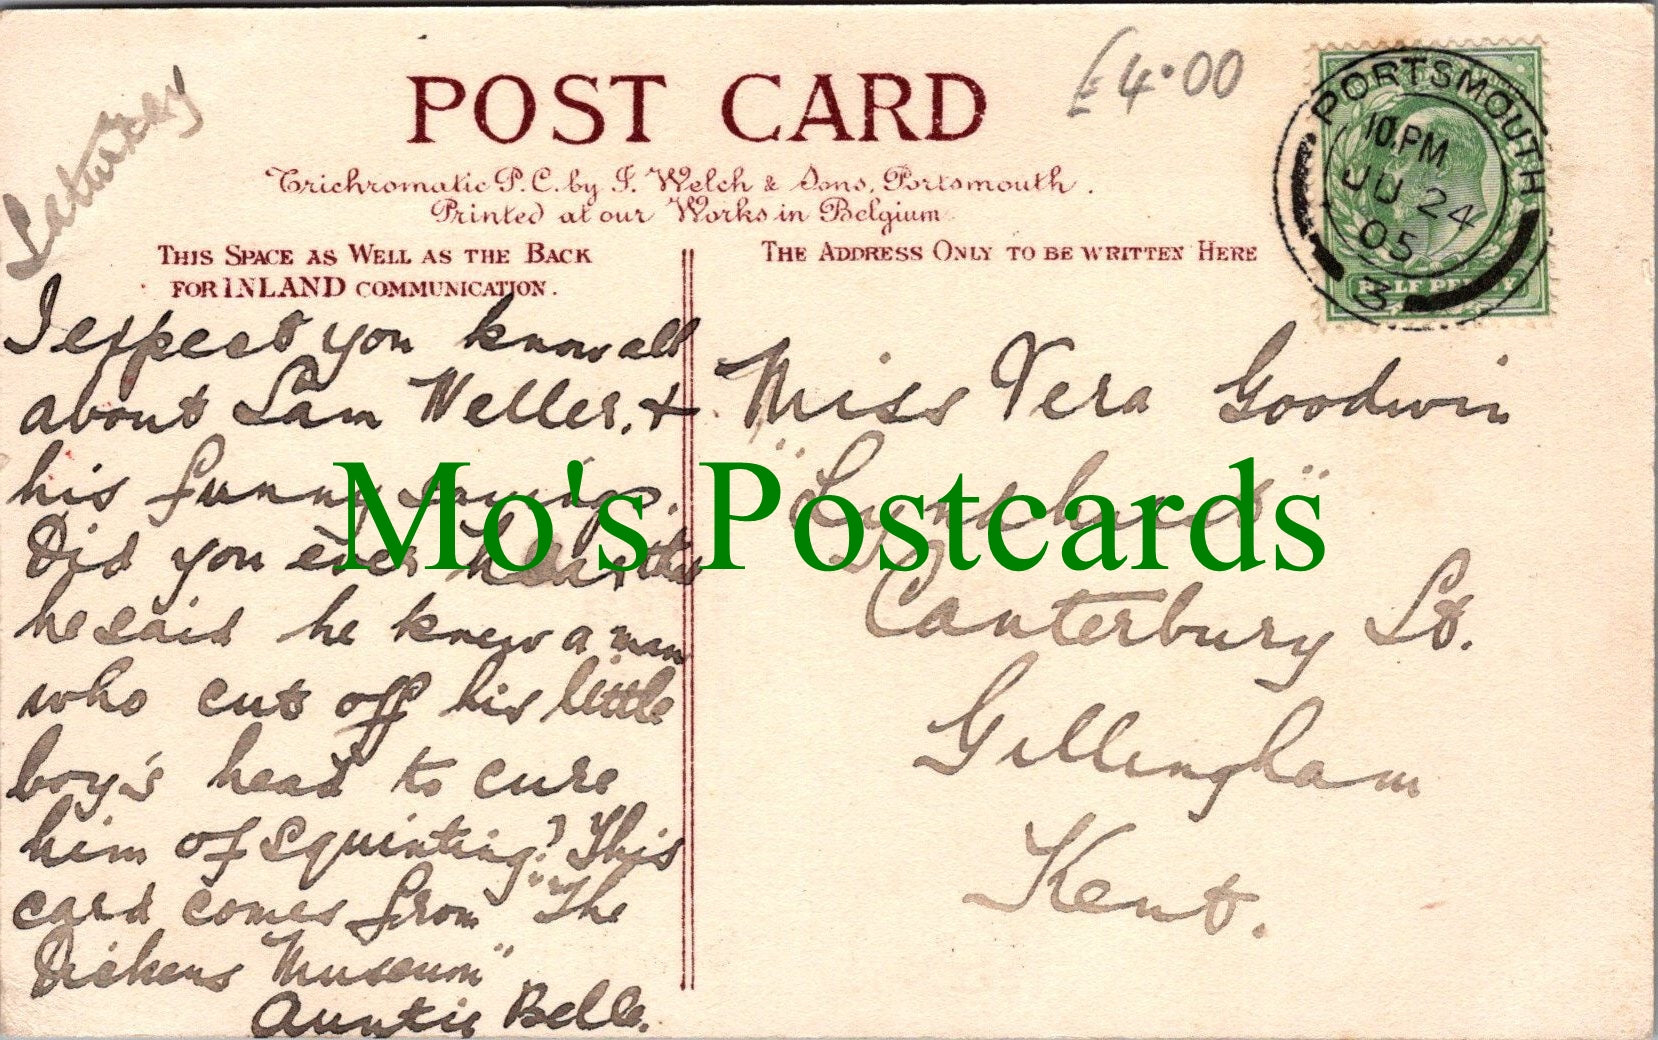 Saturday
POST CARD
£4.00
Trichromatic P.C. by J. Welch & Sons, Portsmouth.
Printed at our Works in Belgium
THIS SPACE AS WELL AS THE BACK
FOR INLAND COMMUNICATION.
THE ADDRESS ONLY TO BE WRITTEN HERE
PORTSMOUTH
10.PM
JU 24
05
3
HALF PENNY
I expect you know all
about Sam Weller, &
his funny sayings.
Did you ever hear that
he said he knew a man
who cut off his little
boy's head to cure
him of squinting? This
card comes from "The
Dickens Museum"
Auntie Belle.
Miss Vera Goodwin
Canterbury St.
Gillingham
Kent.
Mo's Postcards